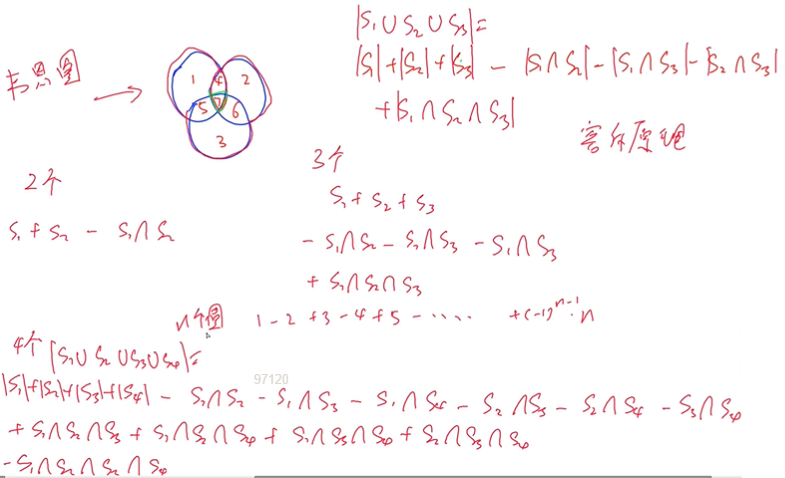 |S₁∪S₂∪S₃|=
|S₁|+|S₂|+|S₃| - |S₁∩S₂| - |S₁∩S₃| - |S₂∩S₃|
+|S₁∩S₂∩S₃|
韦恩图
1 4 2
5 7 6
3
容斥原理
2个
S₁+S₂ - S₁∩S₂
3个
S₁+S₂+S₃
- S₁∩S₂ - S₁∩S₃ - S₁∩S₃
+ S₁∩S₂∩S₃
n个圆 1-2+3-4+5-····· +(-1)ⁿ⁻¹·n
4个 |S₁∪S₂∪S₃∪S₄|=
97120
|S₁|+|S₂|+|S₃|+|S₄| - S₁∩S₂ - S₁∩S₃ - S₁∩S₄ - S₂∩S₃ - S₂∩S₄ - S₃∩S₄
+ S₁∩S₂∩S₃ + S₁∩S₂∩S₄ + S₁∩S₃∩S₄ + S₂∩S₃∩S₄
-S₁∩S₂∩S₂∩S₄